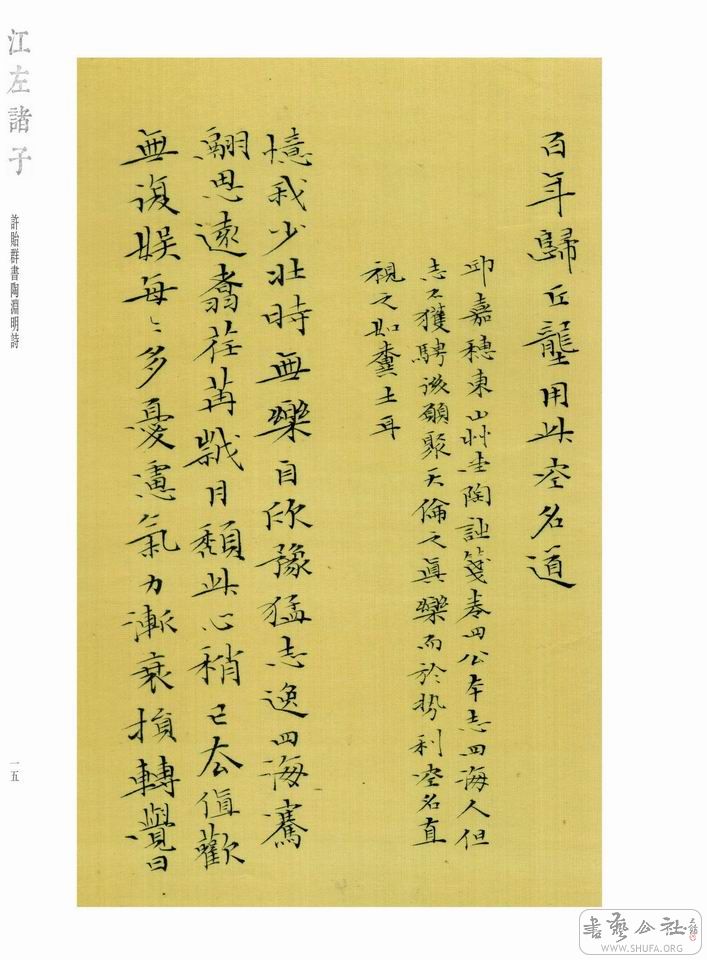 百年歸丘壟用此空名道
邱嘉穗東山艸堂陶詩箋卷四公本志四海人但
志不獲騁該願聚天倫之真樂而於勢利空名直
視之如糞土耳
憶我少壯時無樂自欣豫猛志逸四海騫
翮思遠翥荏苒歲月頹此心稍已去值歡
無復娛每〻多憂慮氣力漸衰損轉覺日
江左諸子
許貽群書陶淵明詩
一五
書藝公社
WWW.SHUFA.ORG